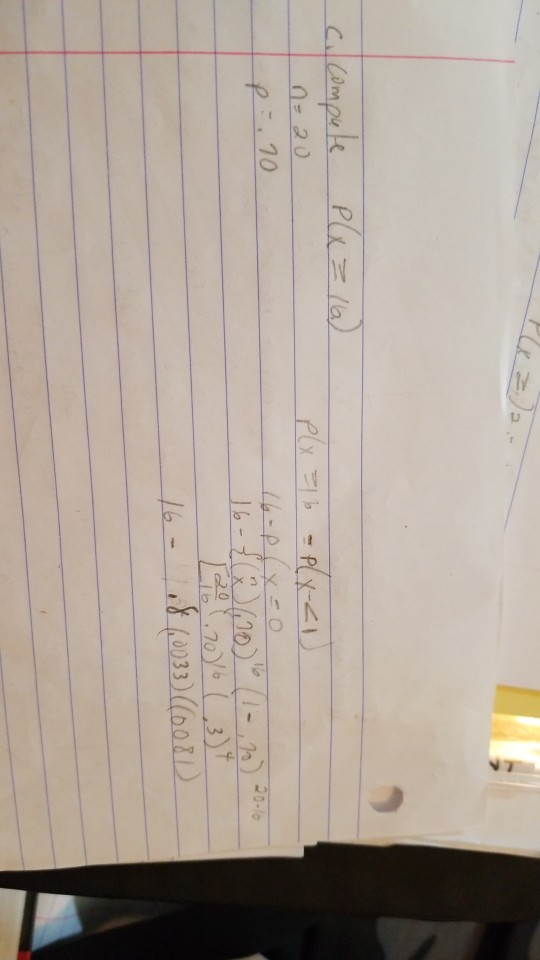 P(x = )2.
C. Compute P(x = 16)
n = 20
p = .70
P(x = 16 = P(x < 1)
16 - P(x = 0
16 - {(n x) (.70)^16 (1 - .70)^20-16
[20 16 (.70)^16 (.3)^4
16 - .8 (.0033)(.0081)